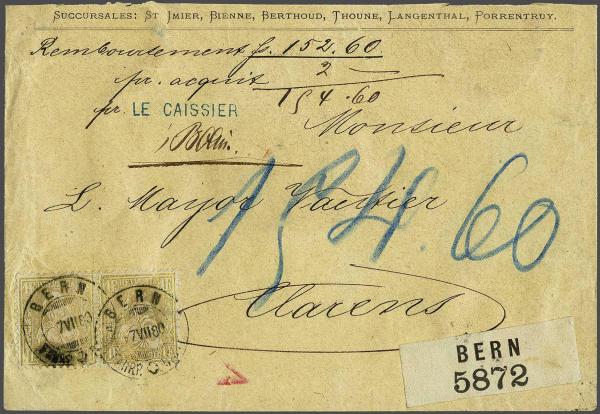 SUCCURSALES: ST IMIER, BIENNE, BERTHOUD, THOUNE, LANGENTHAL, PORRENTRUY.
Remboursement fr. 152.60
pr. acquit 2 —
154.60
pr. LE CAISSIER
Monsieur
L. Mayor Vautier
154.60
Clarens
BERN
7 VII 80
BERN
7 VII 80
BERN
5872